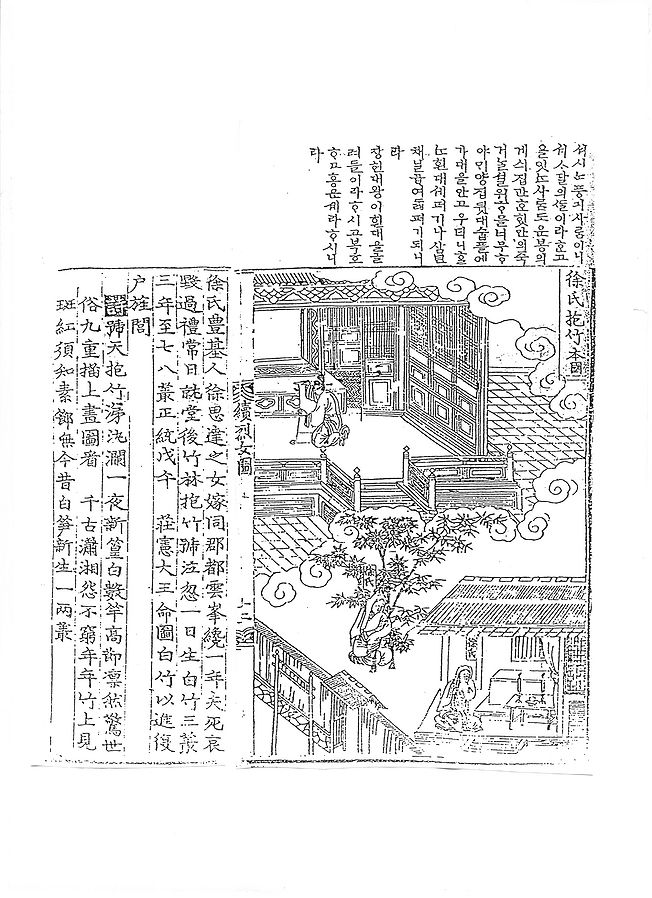 셔시ᄂᆞᆫ풍긔사ᄅᆞᆷ이니
셔ᄉᆞ달의ᄯᆞᆯ이라
사ᄅᆞᆷ도운봉의
게식집간ᄒᆞᆫ힛만의죽
거늘셜워호믈너무ᄒᆞ
야ᄆᆡ양집뒷대숩플에
가대을안고우더니ᄒᆞᄅᆞ
ᄂᆞᆫ흰대세퍼기나삼년
채닐굽여ᄃᆞᆲ퍼기되니
라
장헌대왕이흰대을그
려들이라ᄒᆞ시고복호
ᄒᆞ고홍문셰라ᄒᆞ시니
라
徐氏抱竹 本國
徐氏
續烈女圖 十二
徐氏豊基人徐思達之女嫁同郡都雲峯纔一年夫死哀
毀過禮常日詣堂後竹林抱竹號泣忽一日生白竹三叢
三年至七八叢正統戊午 莊憲大王命圖白竹以進復
户旌閭
號天抱竹淚汍瀾一夜新篁白數竿高節凛然驚世
俗九重描上畫圖看 千古瀟湘怨不窮年年竹上見
斑紅須知素節無今昔白笋新生一兩叢